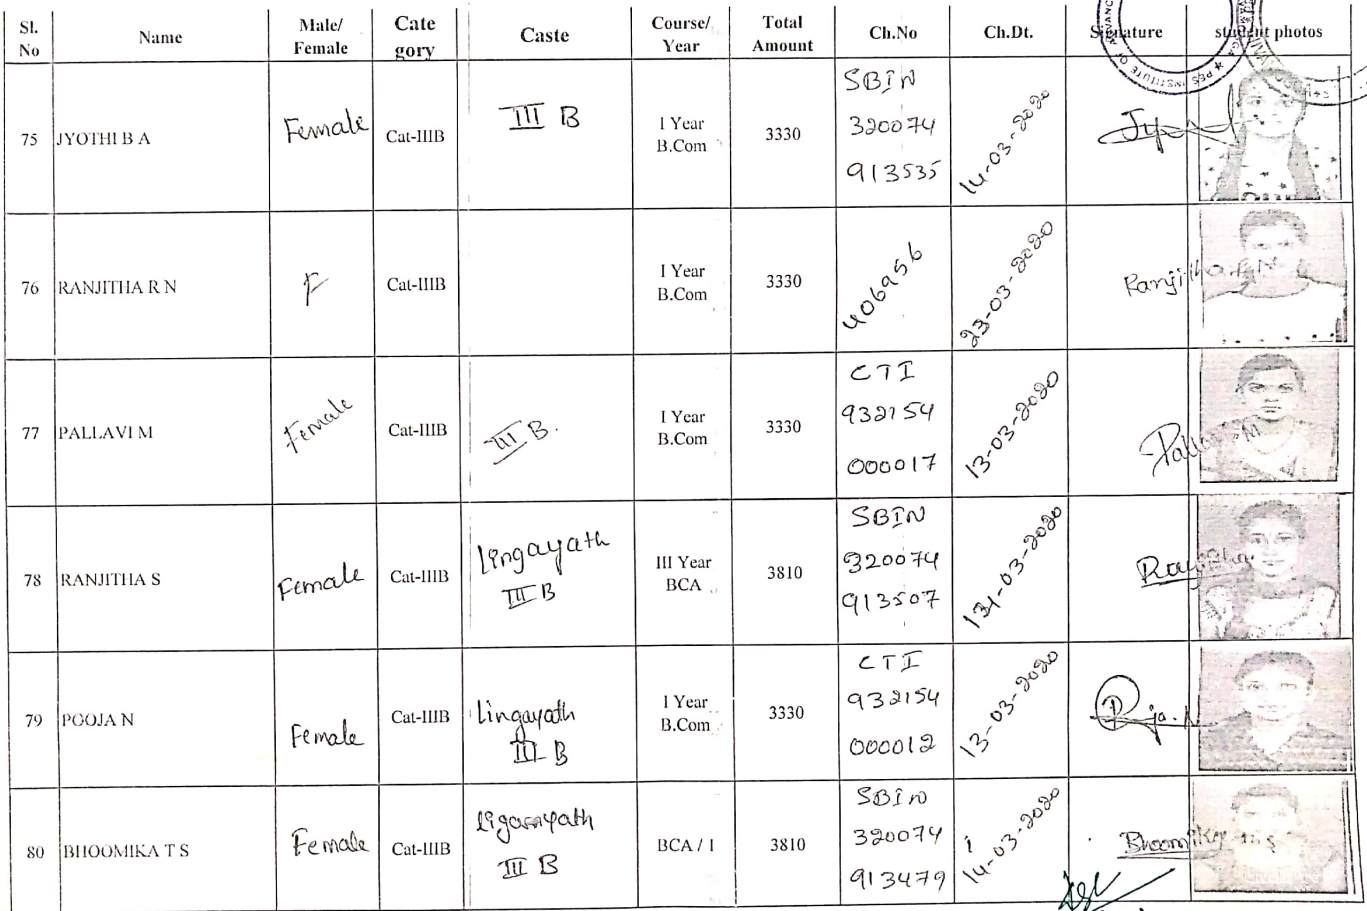 Sl. No Name Male/ Female Cate gory Caste Course/ Year Total Amount Ch.No Ch.Dt. Signature student photos
PES INSTITUTE OF ADVANC
75 JYOTHI B A Female Cat-IIIB III B I Year B.Com 3330 SBIN 320074 913535 14-03-2020
76 RANJITHA R N F Cat-IIIB I Year B.Com 3330 406956 23-03-2020 Ranjitha R N
77 PALLAVI M Female Cat-IIIB III B. I Year B.Com 3330 CTI 932154 000017 13-03-2020
78 RANJITHA S Female Cat-IIIB Lingayath III B III Year BCA 3810 SBIN 320074 913507 03-2020
79 POOJA N Female Cat-IIIB Lingayath III B I Year B.Com 3330 CTI 932154 000012 13-03-2020
80 BHOOMIKA T S Female Cat-IIIB III B BCA / I 3810 SBIN 320074 913479 14-03-2020 Bhoomika T S